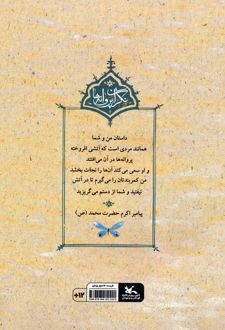 نگران پروانه‌ها
داستان من و شما
همانند مردی است که آتشی افروخته
پروانه‌ها در آن می‌افتند
و او سعی می‌کند آن‌ها را نجات بخشد
من کمربندتان را می‌گیرم تا در آتش
نیفتید و شما از دستم می‌گریزید
پیامبر اکرم حضرت محمد (ص)
+۱۲